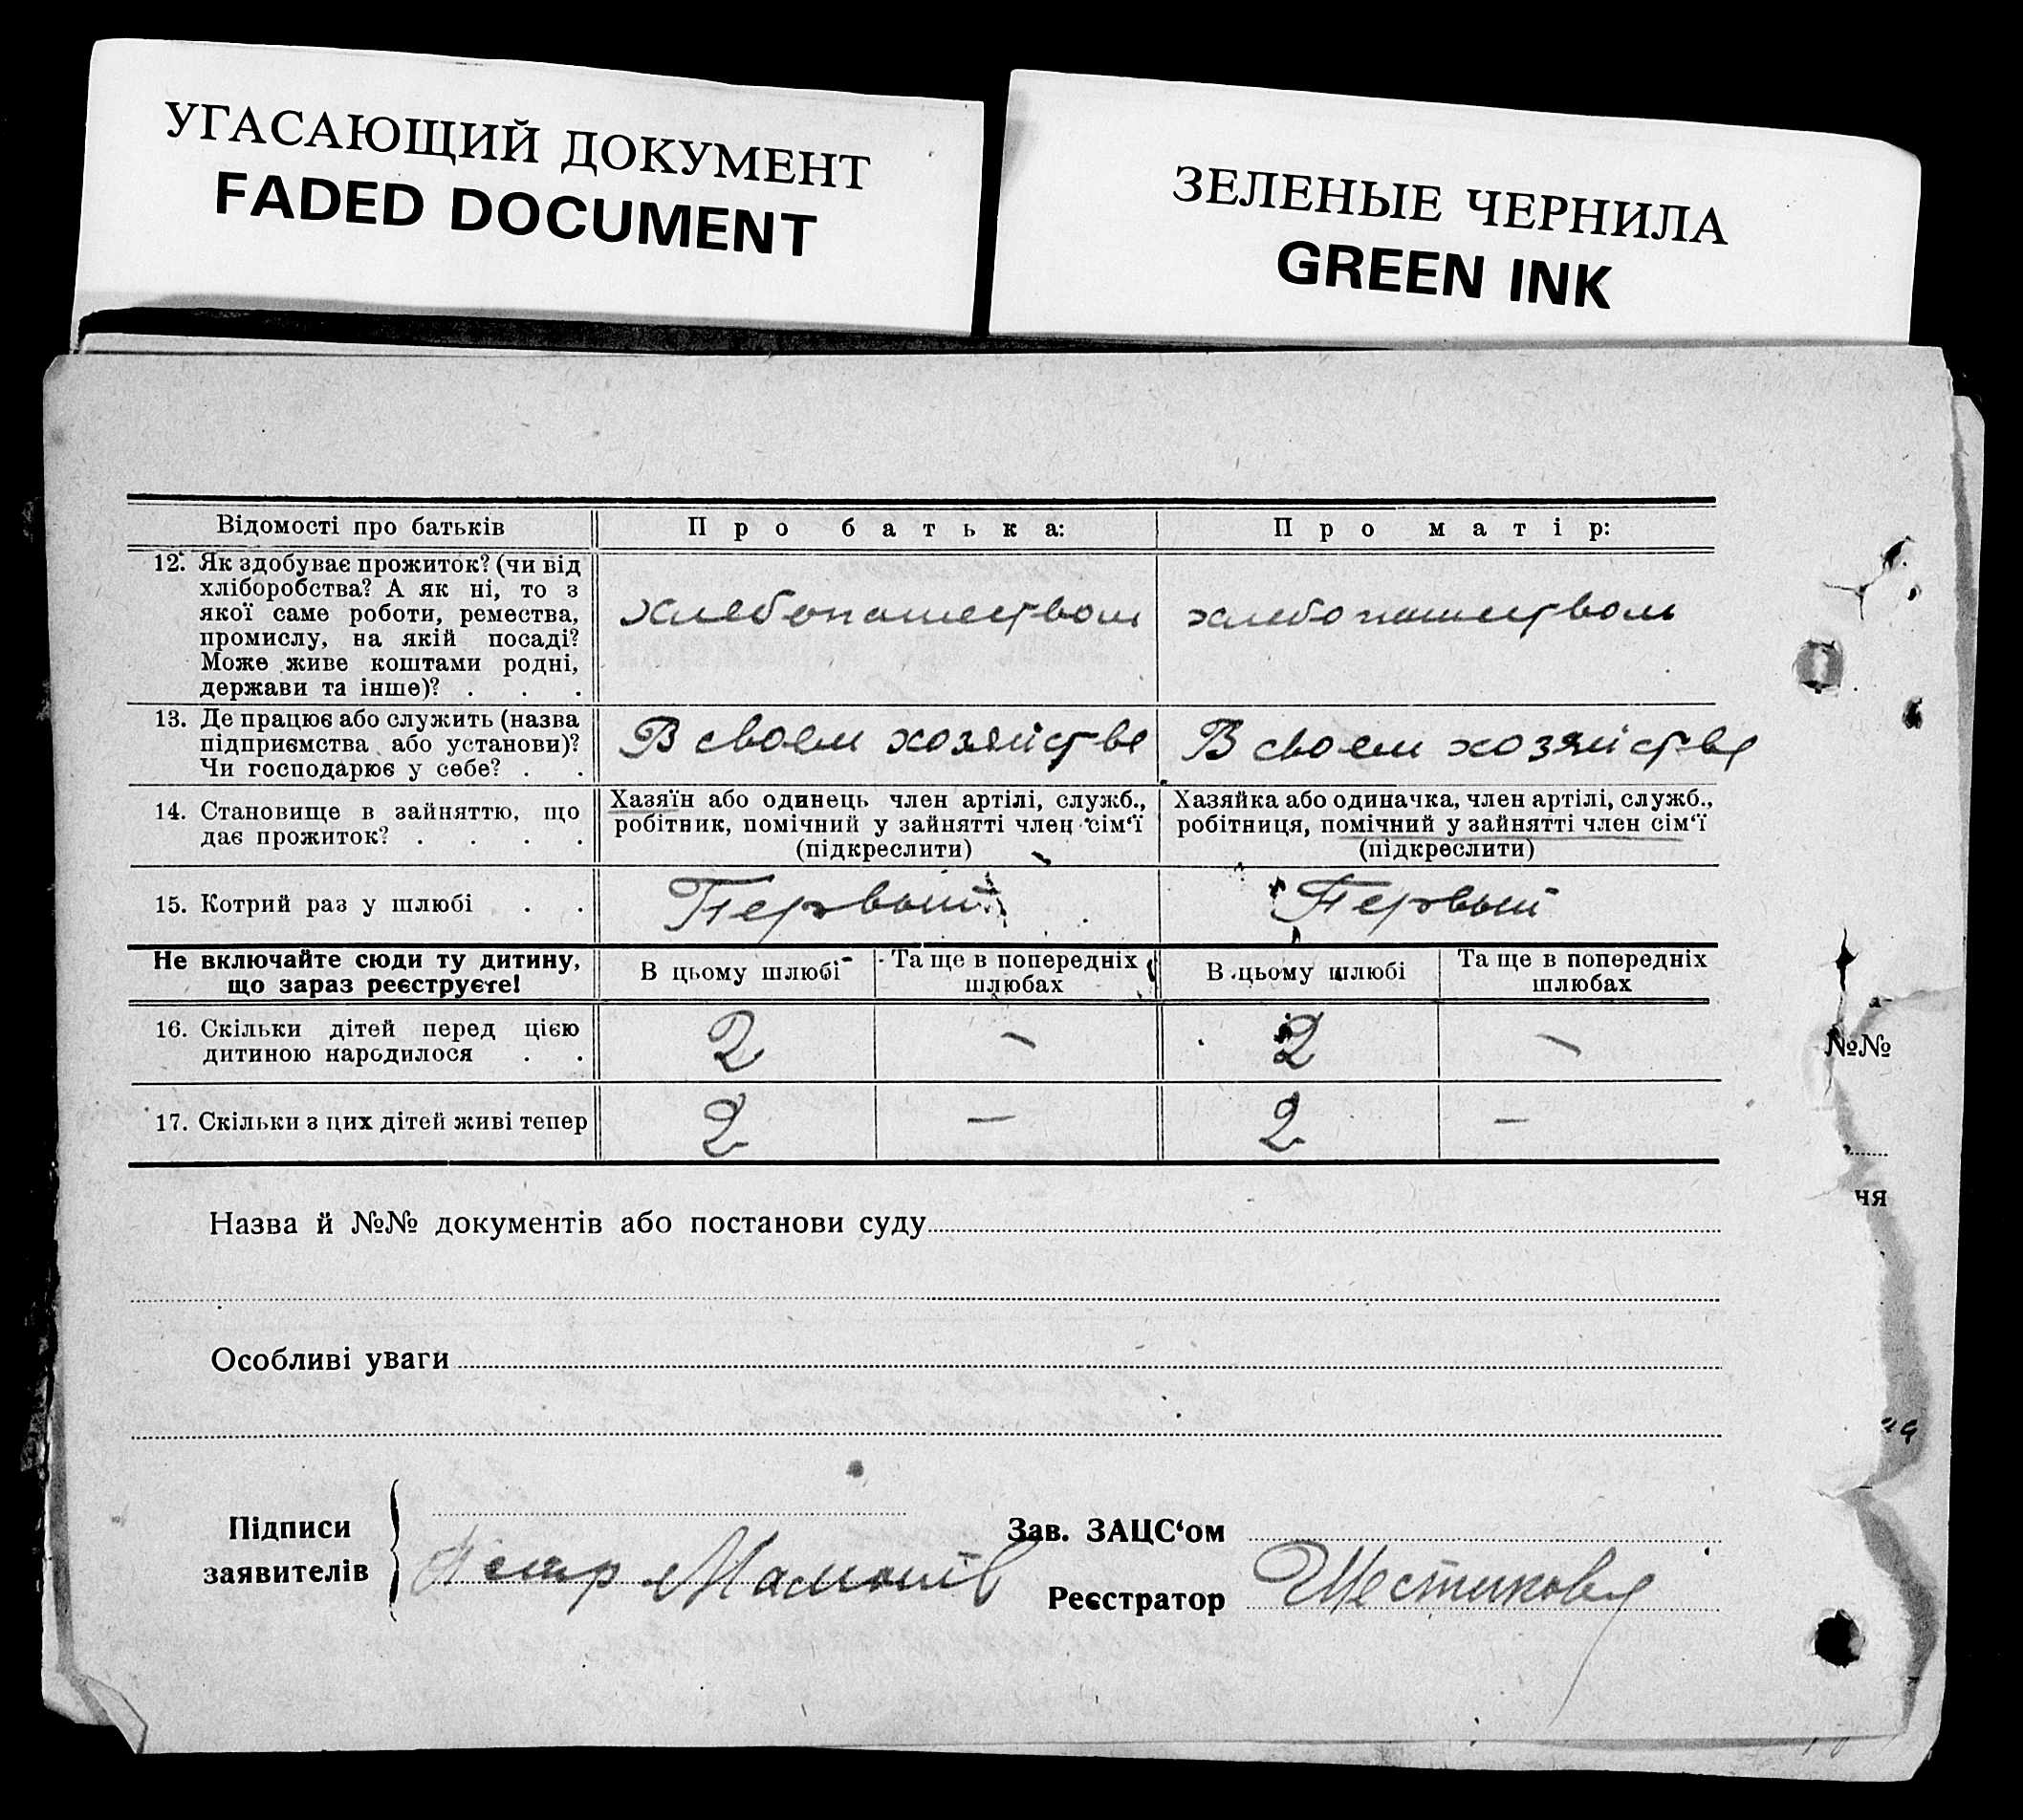 УГАСАЮЩИЙ ДОКУМЕНТ
FADED DOCUMENT
ЗЕЛЕНЫЕ ЧЕРНИЛА
GREEN INK
Відомості про батьків
Про батька:
Про матір:
12. Як здобуває прожиток? (чи від
хліборобства? А як ні, то з
якої саме роботи, ремества,
промислу, на якій посаді?
Може живе коштами родні,
держави та інше)? . . .
хлебопашеством
хлебопашеством
13. Де працює або служить (назва
підприємства або установи)?
Чи господарює у себе? . .
В своем хозяйстве
В своем хозяйстве
14. Становище в зайняттю, що
дає прожиток? . . . .
Хазяїн або одинець член артілі, служб.,
робітник, помічний у зайнятті член сім‘ї
(підкреслити)
Хазяйка або одиначка, член артілі, служб.,
робітниця, помічний у зайнятті член сім‘ї
(підкреслити)
15. Котрий раз у шлюбі . .
Первый
Первый
Не включайте сюди ту дитину,
що зараз реєструєте!
В цьому шлюбі
Та ще в попередніх
шлюбах
В цьому шлюбі
Та ще в попередніх
шлюбах
16. Скільки дітей перед цією
дитиною народилося . .
2 — 2 —
17. Скільки з цих дітей живі тепер
2 — 2 —
Назва й №№ документів або постанови суду
Особливі уваги
Підписи
заявителів
Петр
Зав. ЗАЦС‘ом
Реєстратор
№№
ня